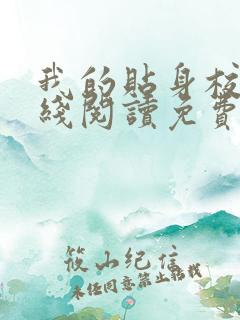 我的貼身校
綫閱讀免費
筱山纪信
未经同意禁止転載